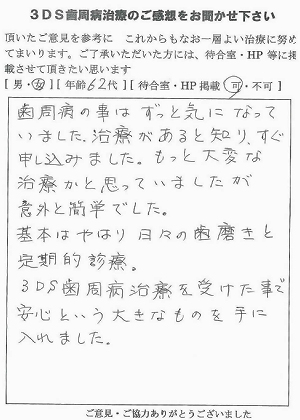 3DS歯周病治療のご感想をお聞かせ下さい
頂いたご意見を参考に これからもなお一層よい治療に努め
てまいります。ご了承いただいた方には、待合室・HP 等に掲
載させて頂きたい思います
[ 男・女 ] [ 年齢 62代 ] [ 待合室・HP掲載 可・不可 ]
歯周病の事はずっと気になって
いました。治療があると知り、すぐ
申し込みました。もっと大変な
治療かと思っていましたが
意外と簡単でした。
基本はやはり日々の歯磨きと
定期的診療。
3DS歯周病治療を受けた事で
安心という大きなものを手に
入れました。
ご意見・ご協力ありがとうございました